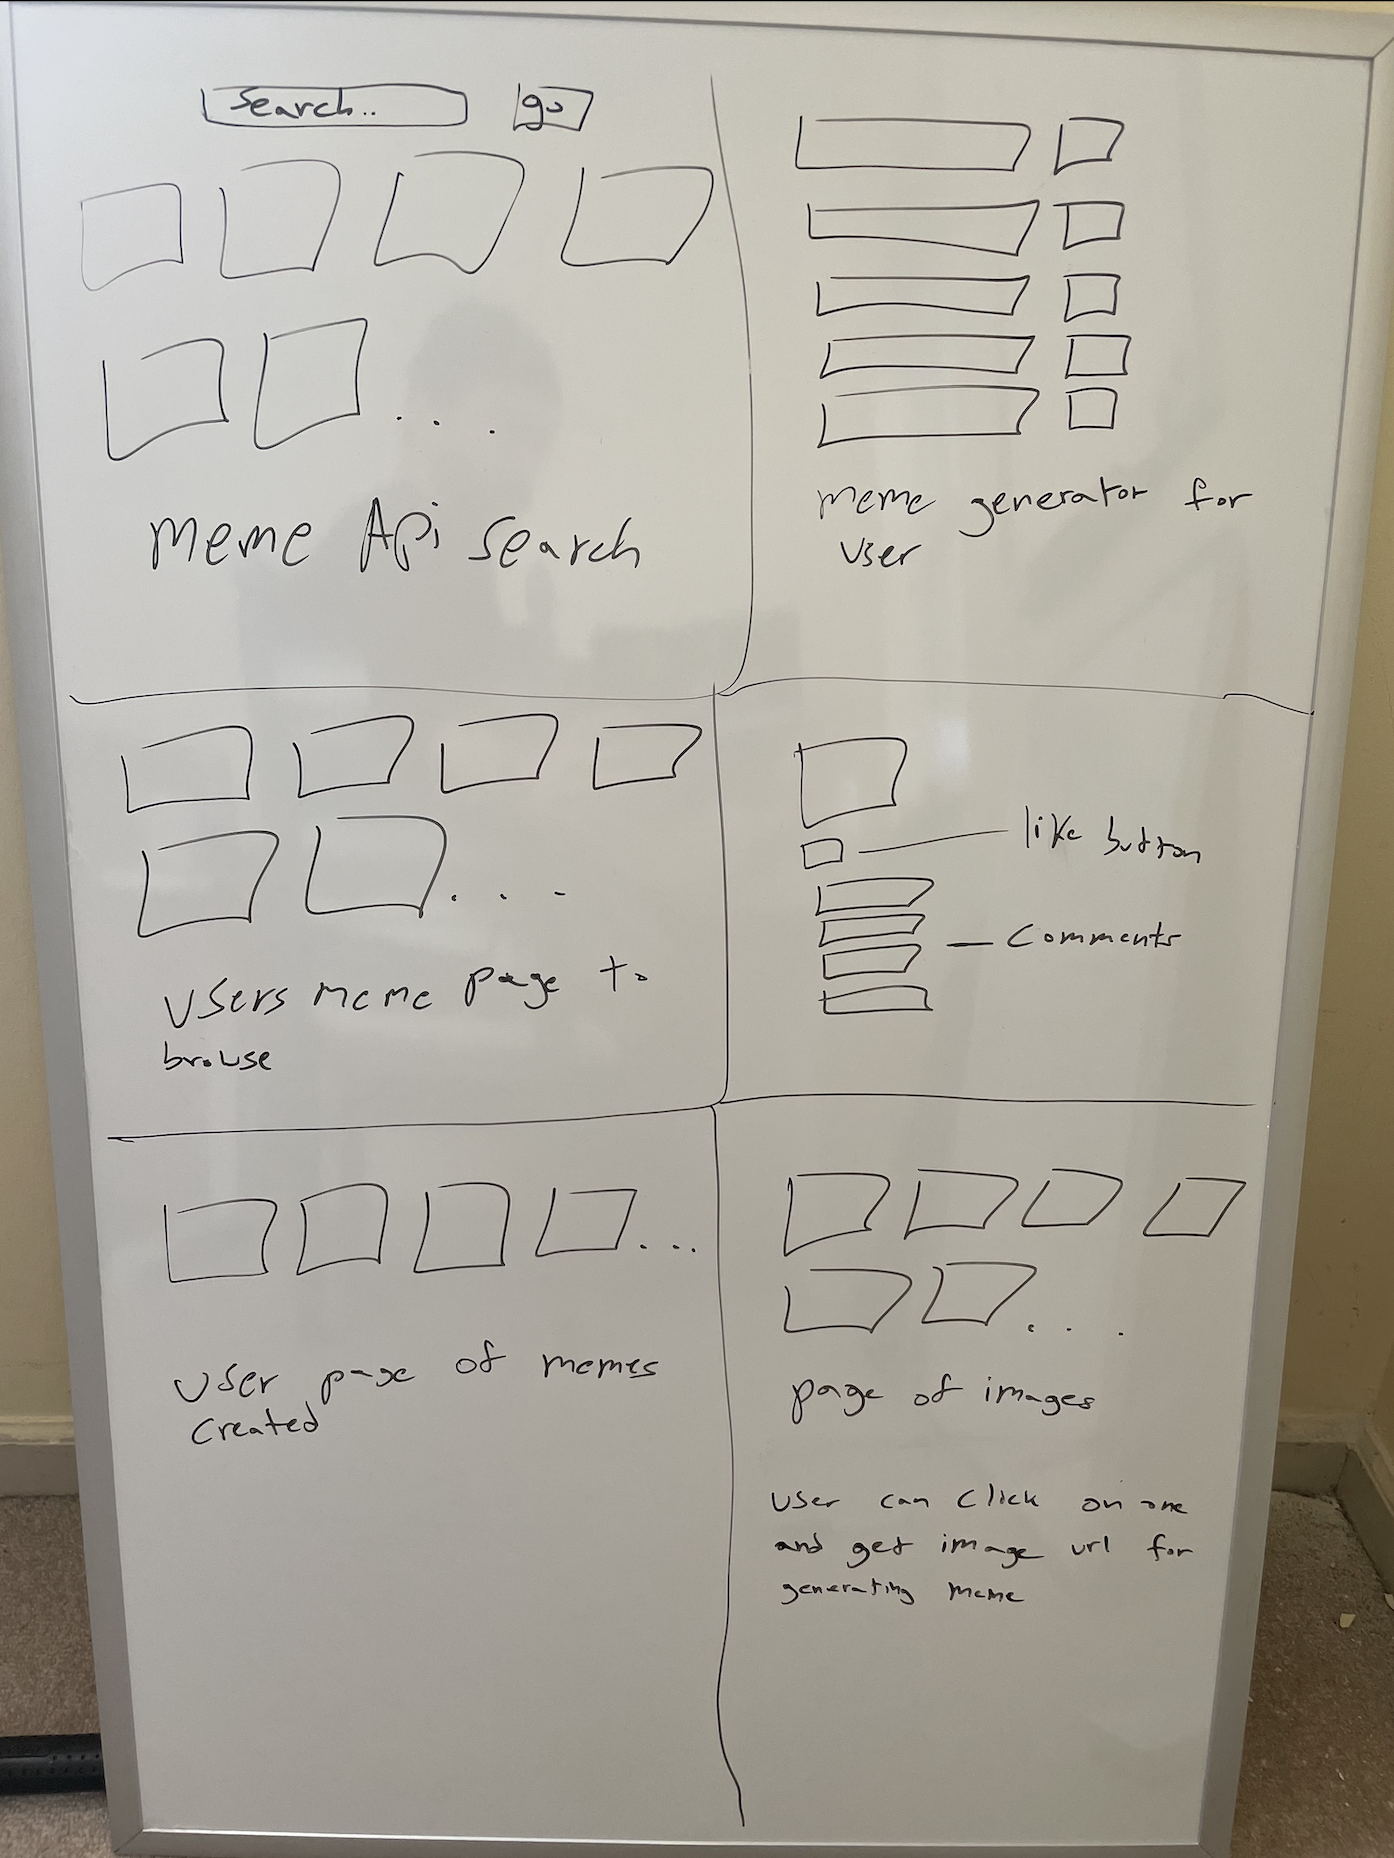 Search.. go
meme Api search
meme generator for
user
users meme page to
browse
like button
Comments
user page of memes
created
page of images
user can click on one
and get image url for
generating meme